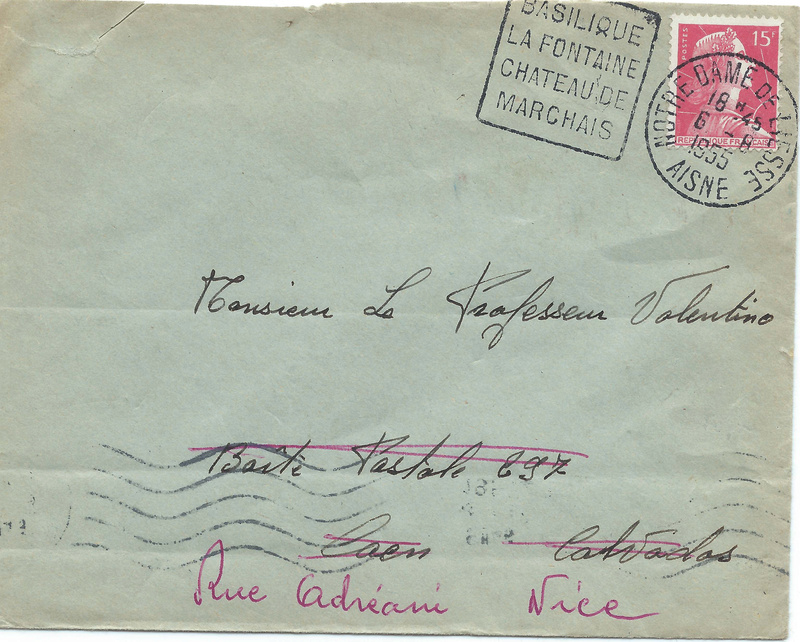 BASILIQUE
LA FONTAINE
CHATEAU DE
MARCHAIS
POSTES
15F
REPUBLIQUE FRANCAISE
NOTRE DAME DE LIESSE
18 H 45
6 - 8
1955
AISNE
Monsieur Le Professeur Valentino
Boîte Postale 897
Caen Calvados
Rue Adréani Nice